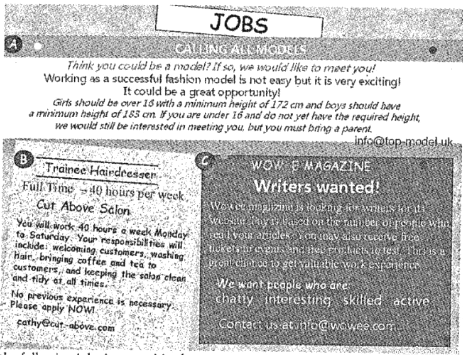 JOBS
A
CALLING ALL MODELS
Think you could be a model? If so, we would like to meet you!
Working as a successful fashion model is not easy but it is very exciting!
It could be a great opportunity!
Girls should be over 16 with a minimum height of 172 cm and boys should have
a minimum height of 183 cm. If you are under 16 and do not yet have the required height,
we would still be interested in meeting you, but you must bring a parent.
info@top-model.uk
B
Trainee Hairdresser
Full Time - 40 hours per week
Cut Above Salon
You will work 40 hours a week Monday
to Saturday. Your responsibilities will
include: welcoming customers, washing
hair, bringing coffee and tea to
customers, and keeping the salon clean
and tidy at all times.
No previous experience is necessary.
Please apply NOW!
cathy@cut-above.com
C
WOW E MAGAZINE
Writers wanted!
Wowee magazine is looking for writers for its
website. Pay is based on the number of people who
read your articles. You may also receive free
tickets to events and free products to test. This is a
great chance to get valuable work experience.
We want people who are:
chatty interesting skilled active
Contact us at info@wowee.com